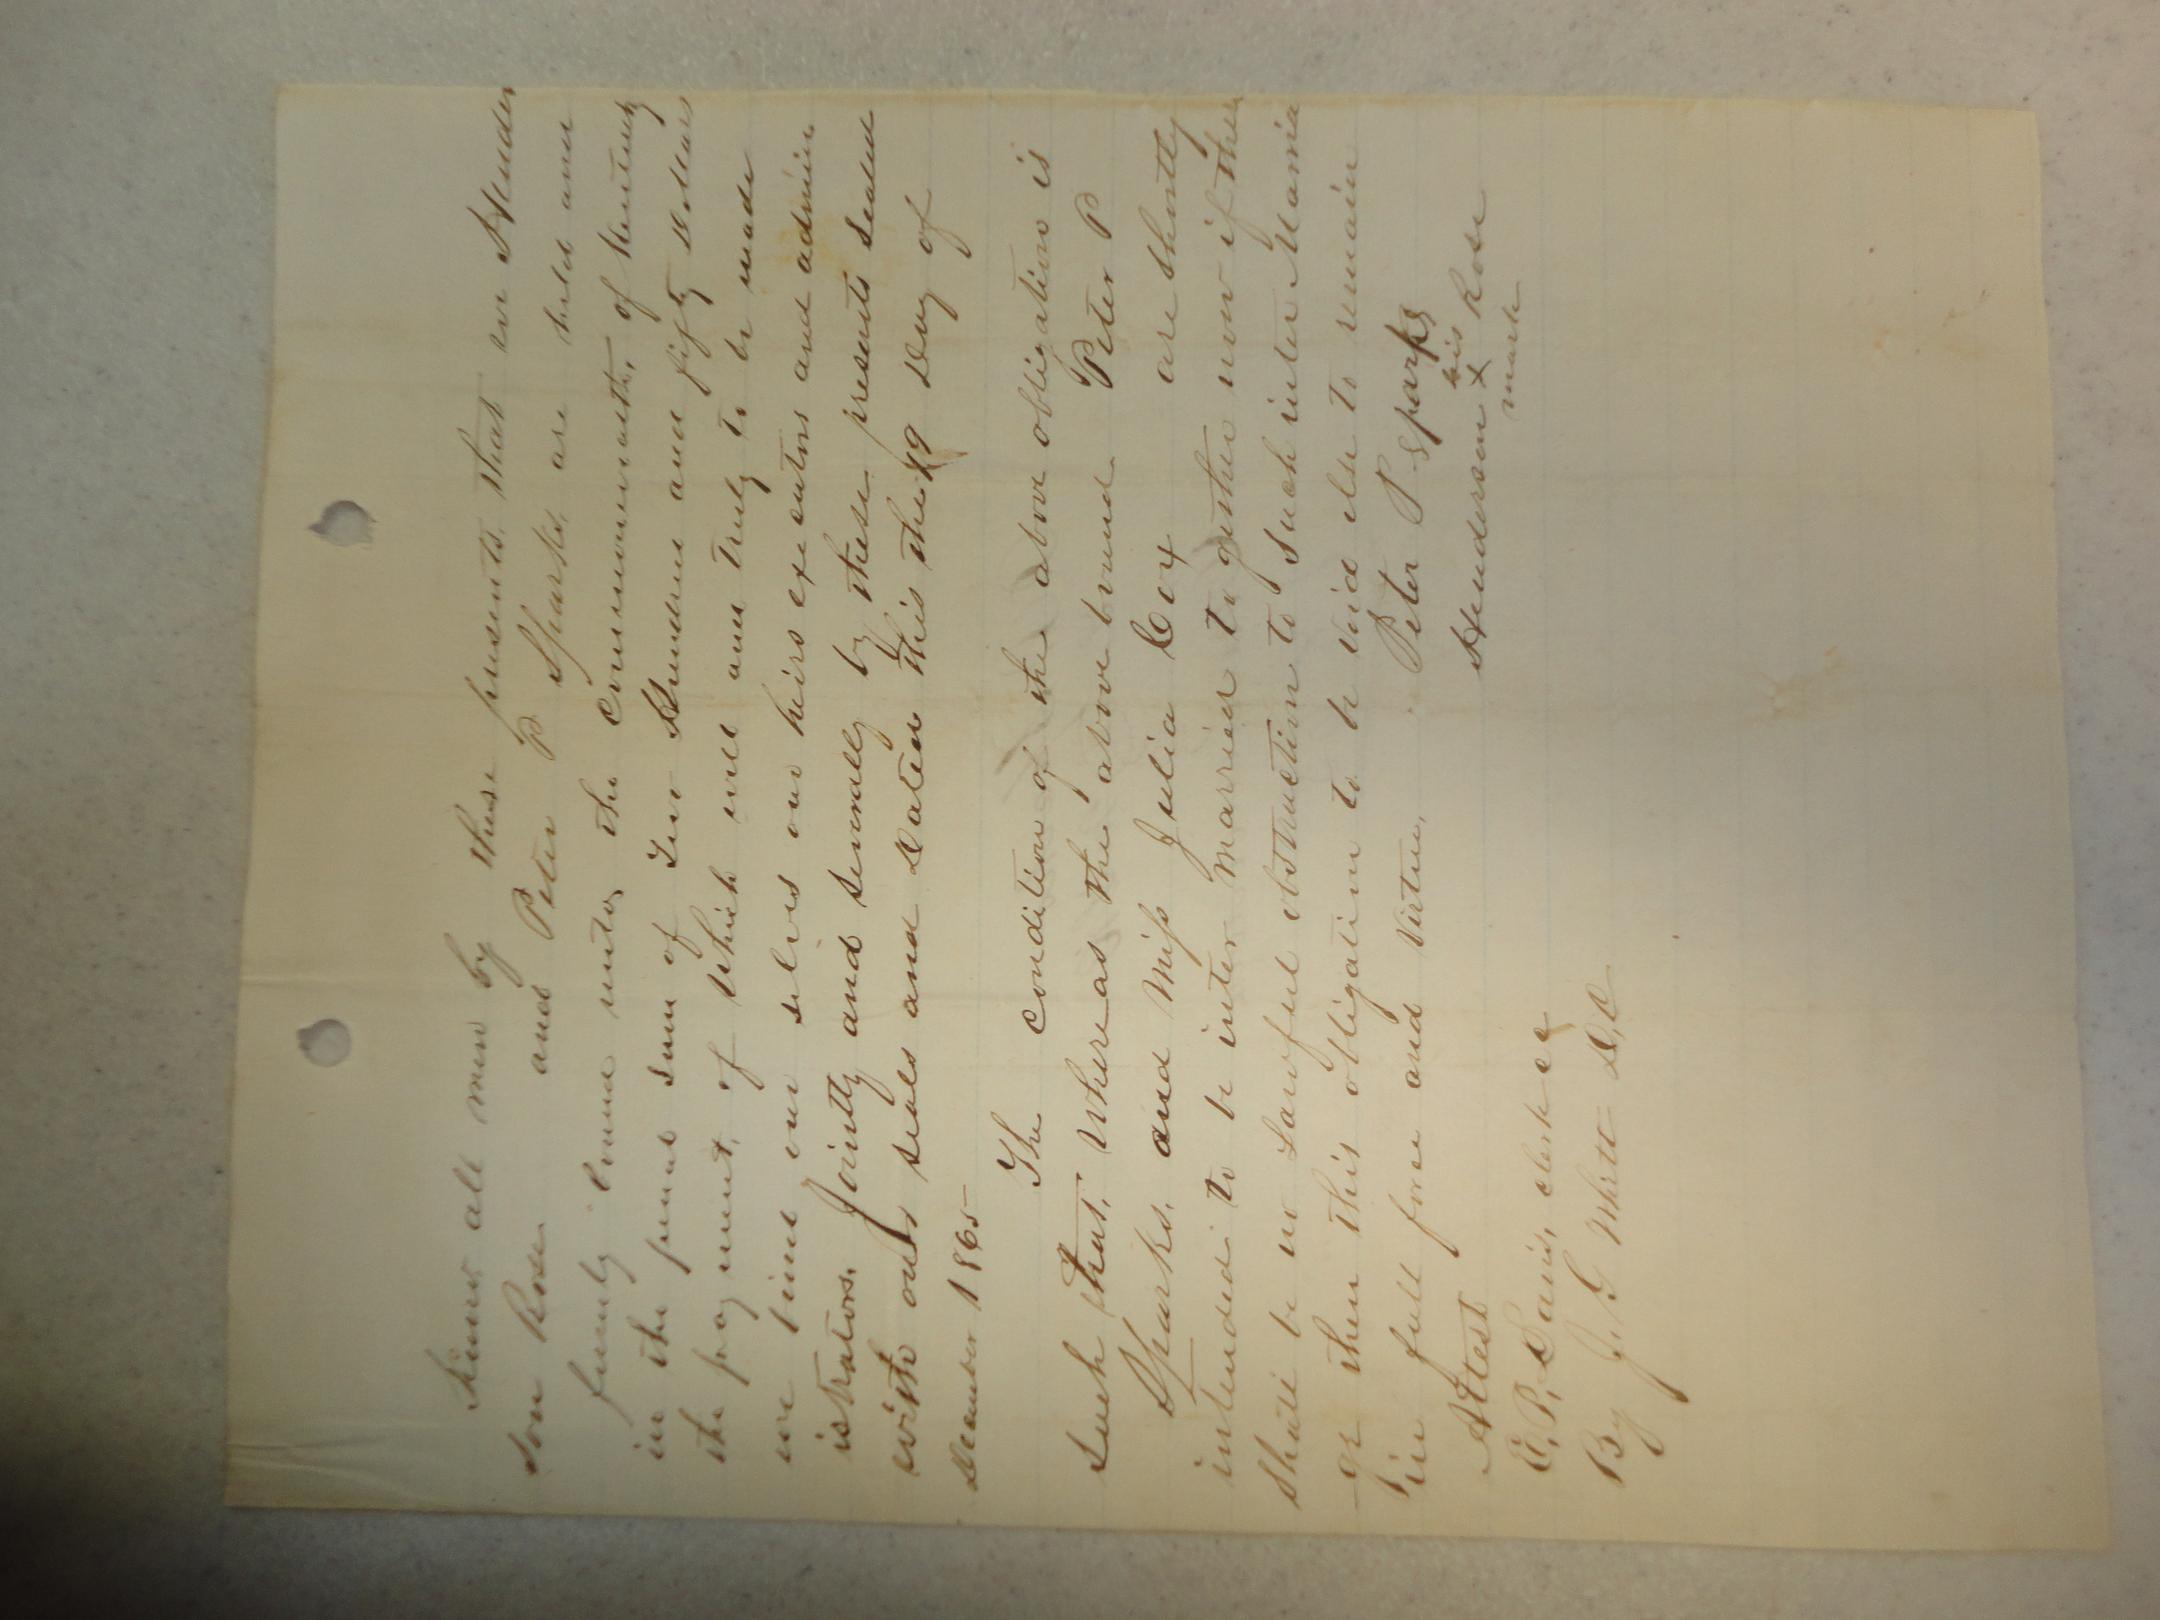 Know all men by these presents, that we Hender
son Rose and Peter P Sparks, are held and
firmly bound unto, the Commonwealth, of Kentucky
in the penal sum of Two Hundred and fifty Dollars
the payment, of which well and truly to be made
we bind our selves our heirs executors and admin
istrators, Jointly and severally by these presents seald
with our seals and Dated this the 19 Day of
December 1865
The condition of the above obligation is
Such that, whereas the above bound Peter P
Sparks, and Miss Julia Cox are shortly
intended to be inter married to gether now if their
shall be no Lawful obstruction to such inter Marria
ge then this obligation to be void else to remain
in full force and virtue,
Peter P Sparks
his
Henderson X Rose
mark
Attest
E, P, Davis, clerk
By J. G White D,C